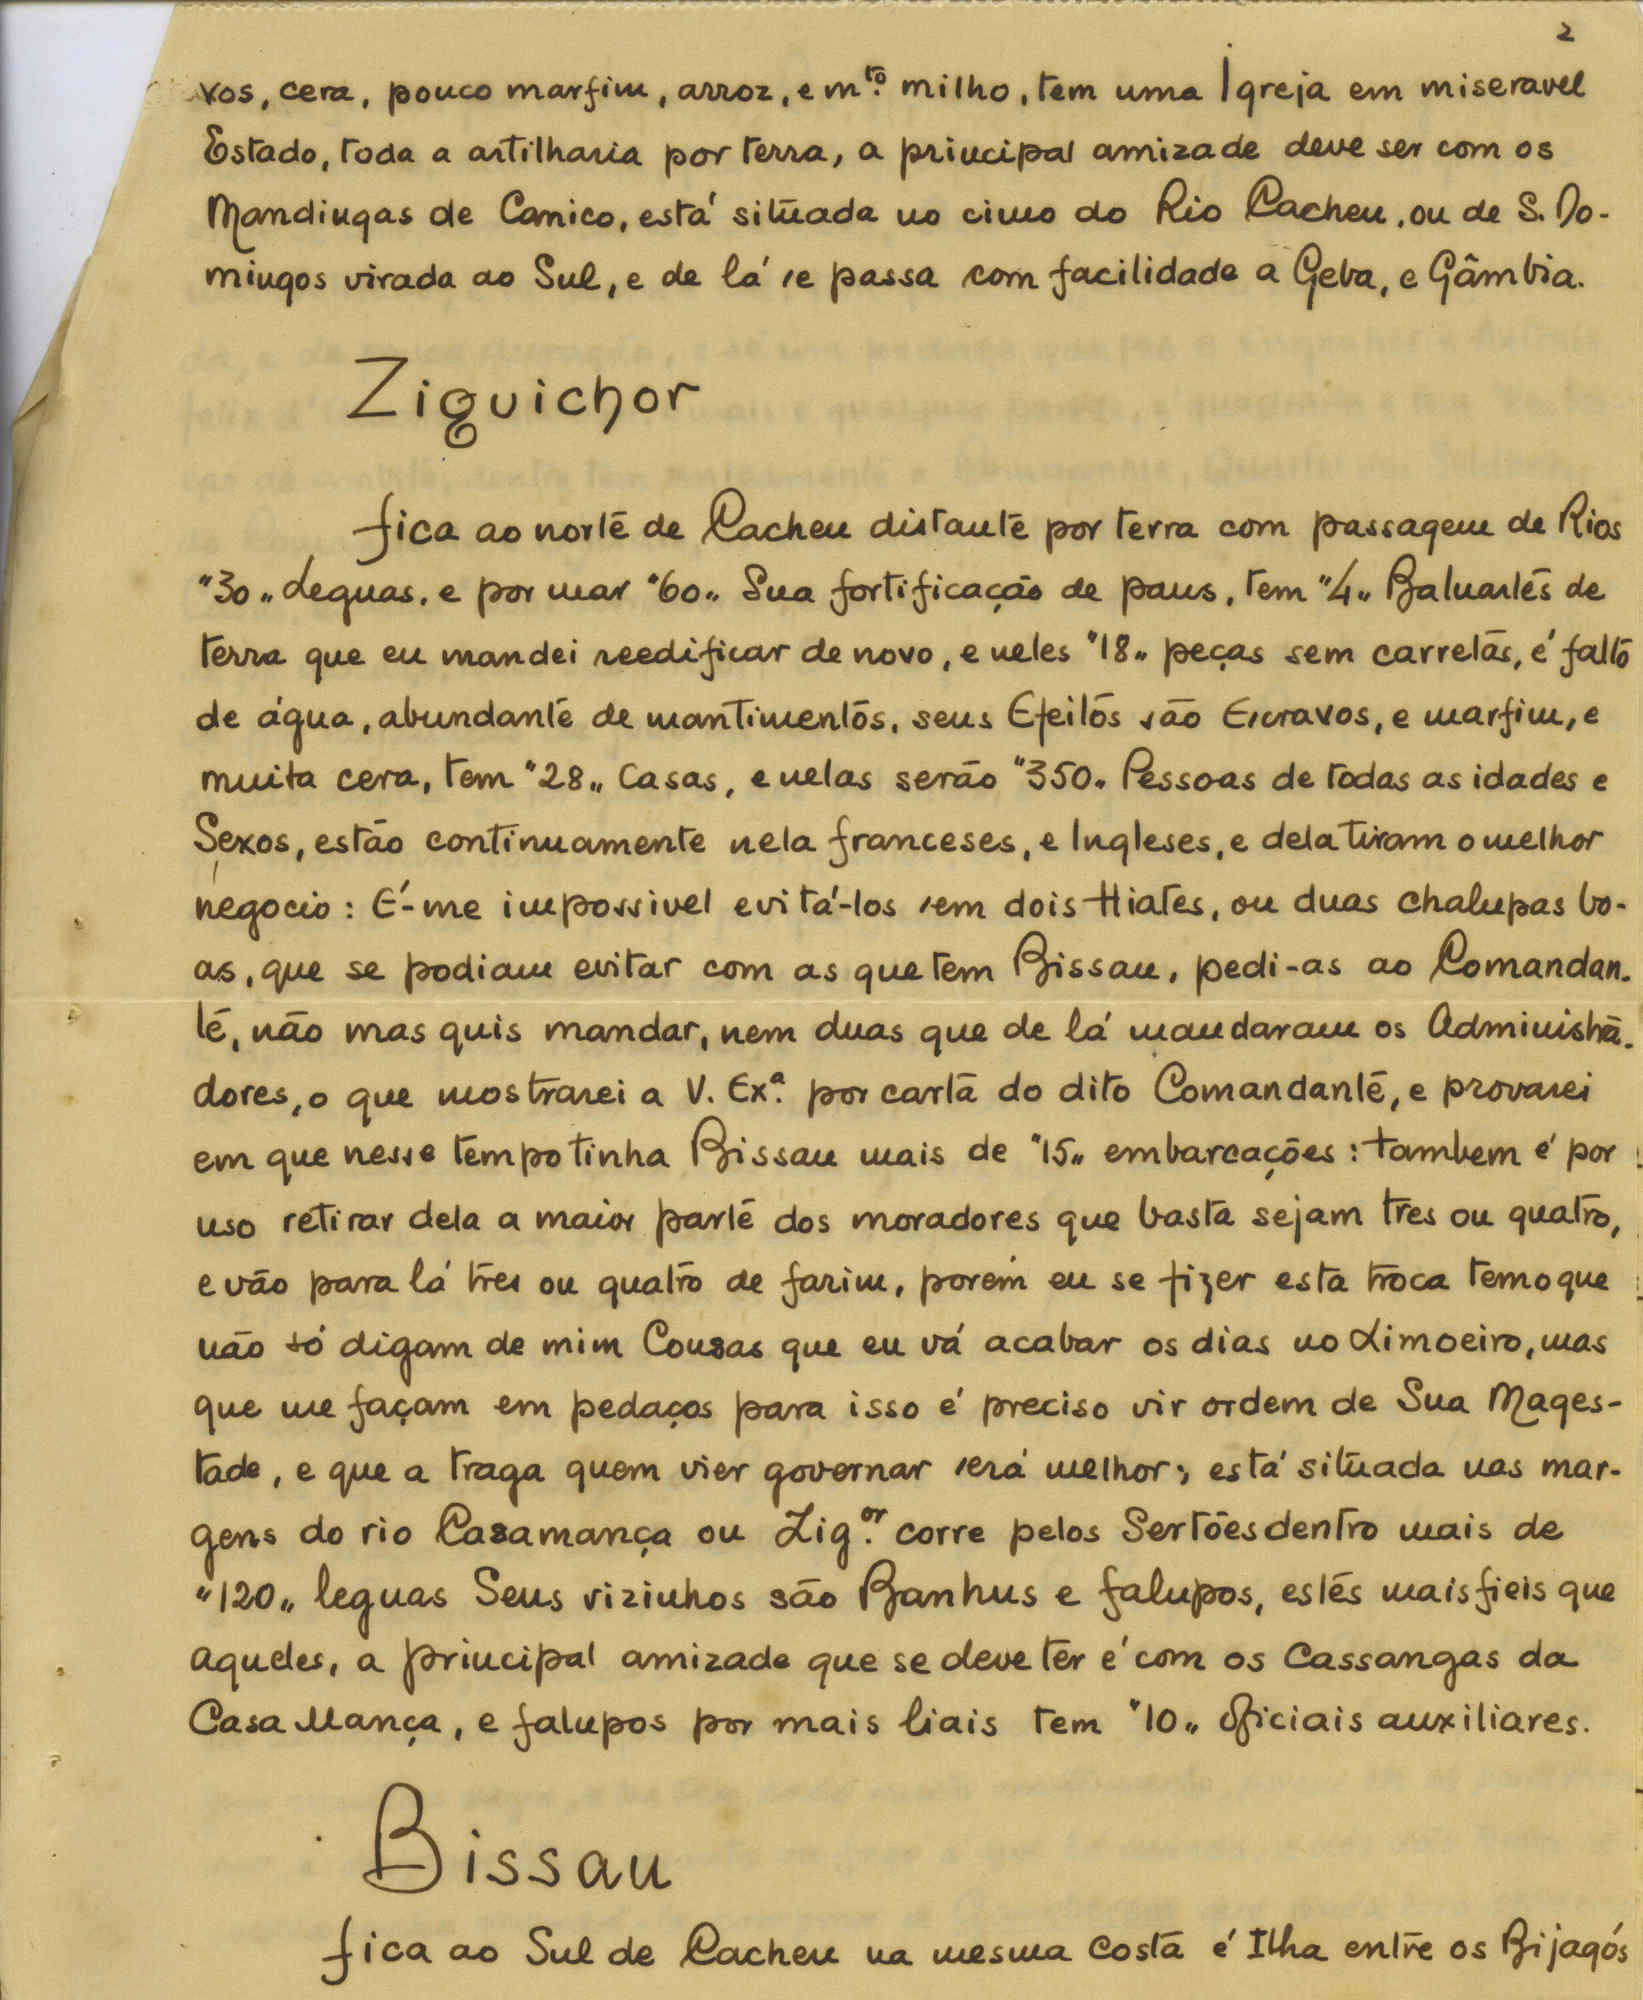 2
vos, cera, pouco marfim, arroz, e m.to milho, tem uma Igreja em miseravel
Estado, toda a artilharia por terra, a principal amizade deve ser com os
Mandingas de Canico, está situada no cimo do Rio Cacheu, ou de S. Do-
mingos virada ao Sul, e de lá se passa com facilidade a Geba, e Gâmbia.
Ziguichor
fica ao norte de Cacheu distante por terra com passagem de Rios
"30„ Leguas, e por mar "60„ Sua fortificação de paus, tem "4„ Baluartes de
terra que eu mandei reedificar de novo, e neles "18„ peças sem carretas, é falto
de água, abundante de mantimentos, seus Efeitos são Escravos, e marfim, e
muita cera, tem "28„ Casas, e nelas serão "350„ Pessoas de todas as idades e
Sexos, estão continuamente nela franceses, e Ingleses, e dela tiram o melhor
negocio: É-me impossivel evitá-los sem dois Hiates, ou duas chalupas bo-
as, que se podiam evitar com as que tem Bissau, pedi-as ao Comandan-
te, não mas quis mandar, nem duas que de lá mandaram os Administra-
dores, o que mostrarei a V. Ex.ª por carta do dito Comandante, e provarei
em que nesse tempo tinha Bissau mais de "15„ embarcações: tambem é por
uso retirar dela a maior parte dos moradores que basta sejam tres ou quatro,
e vão para lá tres ou quatro de farim, porém eu se fizer esta troca temo que
não só digam de mim Cousas que eu vá acabar os dias no Limoeiro, mas
que me façam em pedaços para isso é preciso vir ordem de Sua Mages-
tade, e que a traga quem vier governar será melhor; está situada nas mar-
gens do rio Casamança ou Zig.or corre pelos Sertões dentro mais de
"120„ leguas Seus vizinhos são Banhus e falupos, estes mais fieis que
aqueles, a principal amizade que se deve ter é com os Cassangas da
Casa Mança, e falupos por mais liais tem "10„ Oficiais auxiliares.
Bissau
fica ao Sul de Cacheu na mesma Costa é Ilha entre os Bijagós